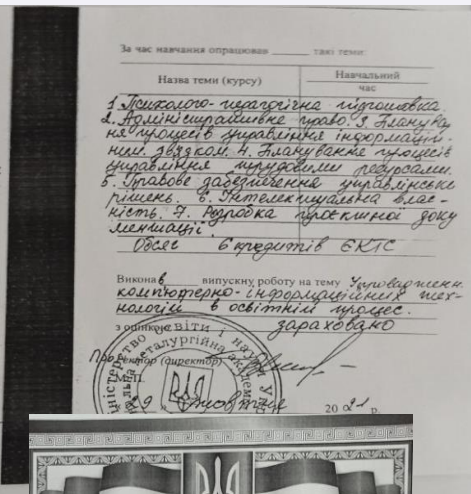 За час навчання опрацював ______ такі теми:
Назва теми (курсу) Навчальний
час
1. Психолого-педагогічна підготовка.
2. Адміністративне право. 3. Планува
ня процесів управління інформацій-
ним звязком. 4. Планування процесів
управління трудовими ресурсами.
5. Правове забезпечення управлінськ
рішень. 6. Інтелектуальна влас-
ність. 7. Розробка проєктної доку
ментації.
Обсяг 6 кредитів ЄКТС
Виконав випускну роботу на тему Упровадженн
компютерно-інформаційних тех-
нологій в освітній процес.
з оцінкою зараховано
(директор)
М.П.
29 жовтня 2021 р.
ністерство освіти і науки Ук
металургійна академ